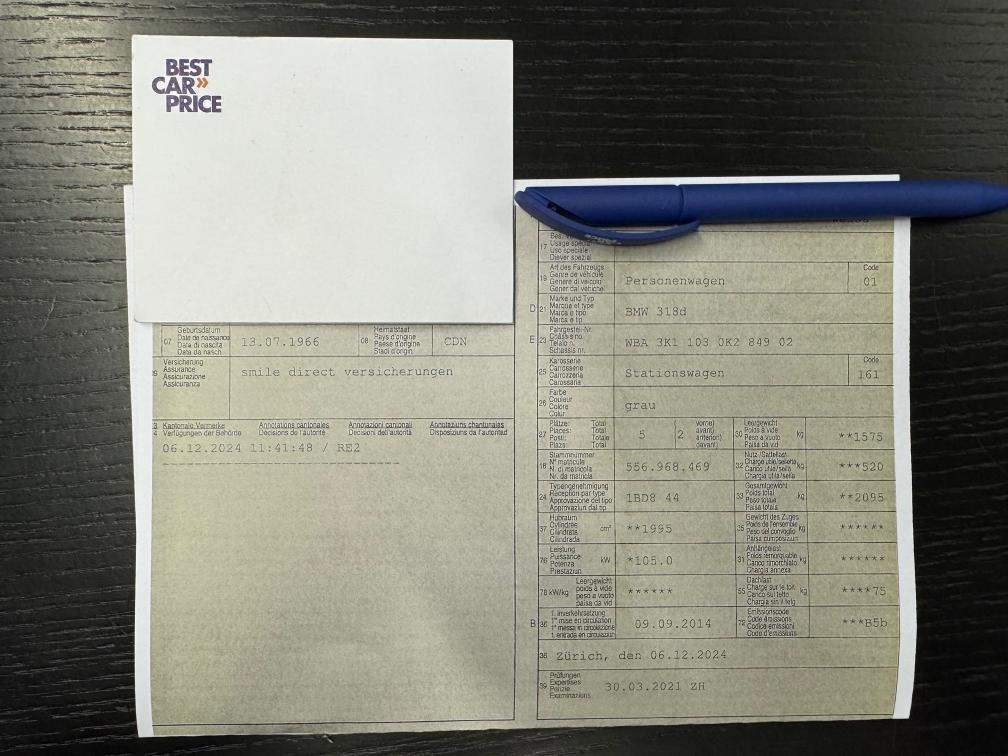 BEST
CAR»
PRICE
17
Usage spécial
Uso speciale
Diever spezial
19 Art des Fahrzeugs
Genre de véhicule
Genere di veicolo
Gener dal vehichel
Personenwagen
Code
01
D 21 Marke und Typ
Marque et type
Marca e tipo
Marca e tip
BMW 318d
E 23 Fahrgestell-Nr.
Châssis no
Telaio n.
Schassis nr.
WBA 3K1 103 0K2 849 02
07 Geburtsdatum
Date de naissance
Data di nascita
Data da nasch.
13.07.1966
08 Heimatstaat
Pays d'origine
Paese d'origine
Stadi d'origin
CDN
Versicherung
Assurance
Assicurazione
Assicuranza
smile direct versicherungen
25 Karosserie
Carrosserie
Carrozzeria
Carossaria
Stationswagen
Code
161
26 Farbe
Couleur
Colore
Colur
grau
Kantonale Vermerke
Verfügungen der Behörde
Annotations cantonales
Décisions de l'autorité
Annotazioni cantonali
Decisioni dell'autorità
Annotaziuns chantunalas
Disposiziuns da l'autoritad
06.12.2024 11:41:48 / RE2
--------------------------------
27 Plätze: Total
Places: Total
Posti: Totale
Plazs: Total
5
2
vorne)
avant)
anteriori)
davant)
30 Leergewicht
Poids à vide
Peso a vuoto
Paisa da vid
kg
**1575
18 Stammnummer
N° matricule
N. di matricola
Nr. da matricla
556.968.469
32 Nutz-/Sattellast
Charge utile/sellette
Carico utile/sella
Chargia utila/sella
kg
***520
24 Typengenehmigung
Réception par type
Approvazione del tipo
Approvaziun dal tip
1BD8 44
33 Gesamtgewicht
Poids total
Peso totale
Paisa totala
kg
**2095
37 Hubraum
Cylindrée
Cilindrata
Cilindrada
cm³
**1995
35 Gewicht des Zuges
Poids de l'ensemble
Peso del convoglio
Paisa cumposiziun
kg
******
76 Leistung
Puissance
Potenza
Prestaziun
kW
*105.0
31 Anhängelast
Poids remorquable
Carico rimorchiato
Chargia annexa
kg
******
78 kW/kg
Leergewicht
poids à vide
peso a vuoto
paisa da vid
******
55 Dachlast
Charge sur le toit
Carico sul tetto
Chargia sin il tetg
kg
****75
B 36 1. Inverkehrsetzung
1re mise en circulation
1a messa in circolazione
1. entrada en circulaziun
09.09.2014
72 Emissionscode
Code émissions
Codice emissioni
Code d'emissiuns
***B5b
38 Zürich, den 06.12.2024
39 Prüfungen
Expertises
Perizie
Examinaziuns
30.03.2021 ZH